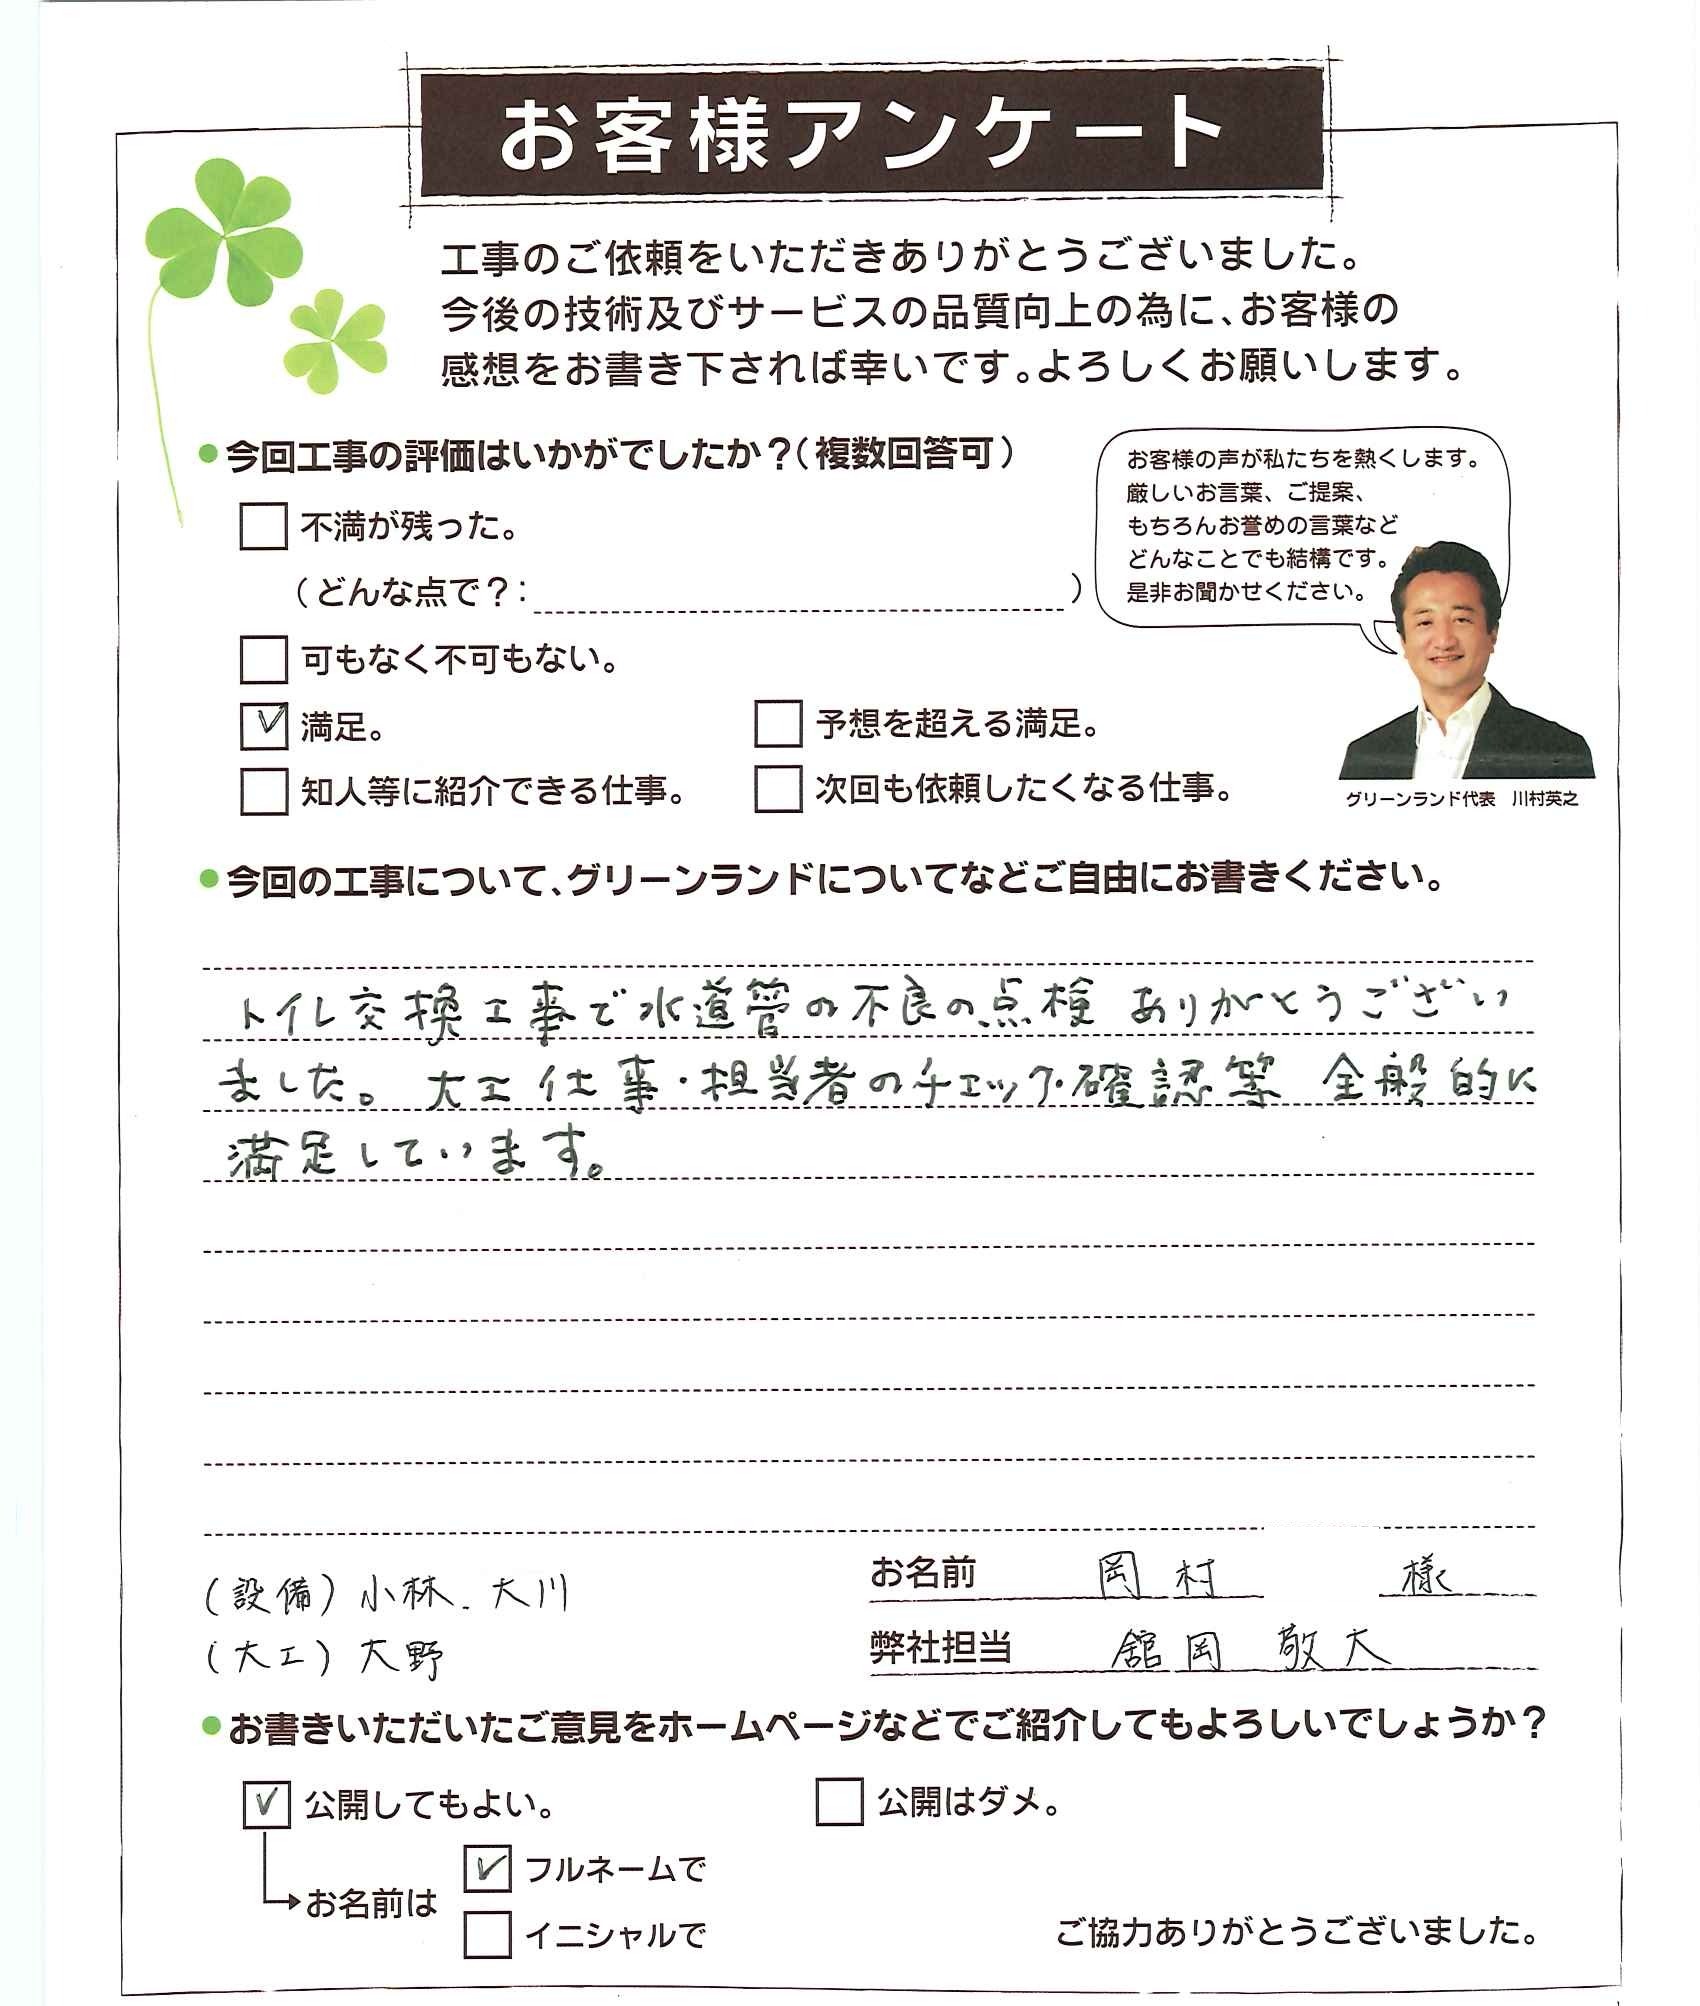 お客様アンケート
工事のご依頼をいただきありがとうございました。
今後の技術及びサービスの品質向上の為に、お客様の
感想をお書き下されば幸いです。よろしくお願いします。
●今回工事の評価はいかがでしたか？（複数回答可）
不満が残った。
（どんな点で？：　）
可もなく不可もない。
満足。
予想を超える満足。
知人等に紹介できる仕事。
次回も依頼したくなる仕事。
お客様の声が私たちを熱くします。
厳しいお言葉、ご提案、
もちろんお誉めの言葉など
どんなことでも結構です。
是非お聞かせください。
グリーンランド代表　川村英之
●今回の工事について、グリーンランドについてなどご自由にお書きください。
トイレ交換工事で水道管の不良の点検 ありがとうござい
ました。大工仕事・担当者のチェック・確認等 全般的に
満足しています。
（設備）小林．大川
（大工）大野
お名前　岡村　様
弊社担当　舘岡 敬大
●お書きいただいたご意見をホームページなどでご紹介してもよろしいでしょうか？
公開してもよい。
公開はダメ。
お名前は
フルネームで
イニシャルで
ご協力ありがとうございました。